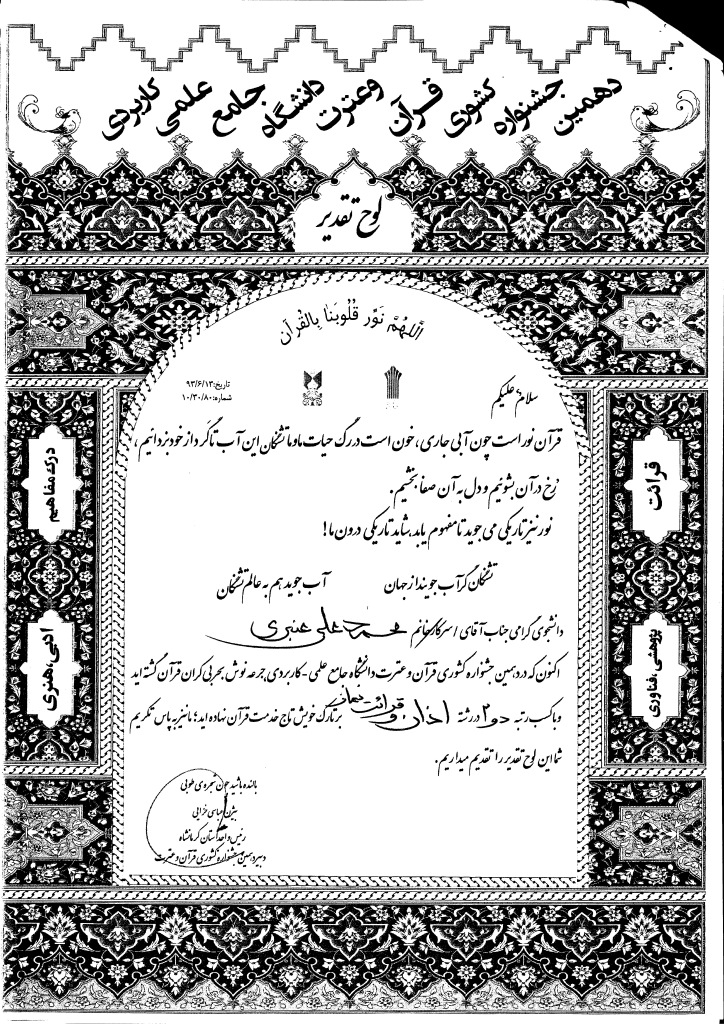 دهمین جشنواره کشوری قرآن وعترت دانشگاه جامع علمی کاربردی
لوح تقدیر
اللهُمَّ نَوِّر قُلُوبَنا بِالقُرآن
سلامٌ علیکم
تاریخ: ۹۳/۶/۱۳
شماره: ۱۰/۳۰/۸۰
قرآن نور است چون آبی جاری، خون است در رگ حیات ما و ما تشنگان این آب تا گَرد از خود بزدائیم،
رُخ در آن بشوئیم و دل به آن صفا بخشیم.
نور نیز تاریکی می جوید تا مفهوم یابد، شاید تاریکی درون ما!
تشنگان گر آب جویند از جهان
آب جوید هم به عالم تشنگان
دانشجوی گرامی جناب آقای / سرکار خانم محمد علی عنبری
اکنون که در دهمین جشنواره کشوری قرآن و عترت دانشگاه جامع علمی - کاربردی جرعه نوش بحر بی کران قرآن گشته اید
و با کسب رتبه دوم در رشته اذان و قرائت نماز بر تارک خویش تاج خدمت قرآن نهاده اید؛ ما نیز به پاس تکریم
شما این لوح تقدیر را تقدیم میداریم.
بالنده باشید چون شجره ی طوبی
بیژن عباسی خزایی
رئیس واحد استان کرمانشاه
و دبیر دهمین جشنواره کشوری قرآن و عترت
قرائت
پژوهشی، فناوری
درک مفاهیم
ادبی، هنری